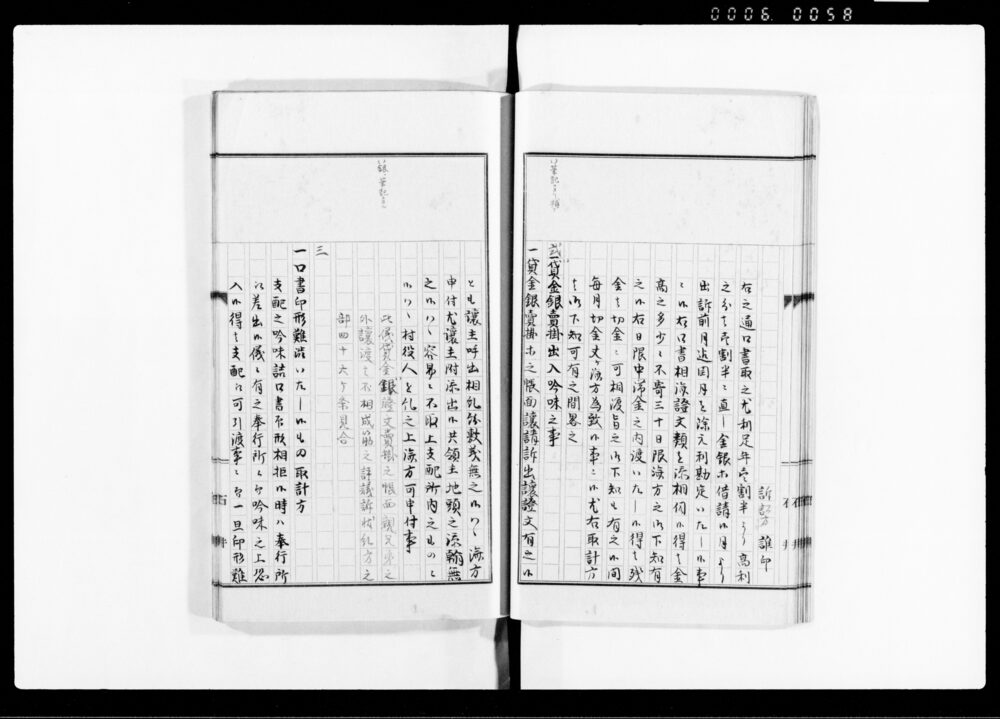 0006 0058
訴訟方 誰印
右之通口書取之尤利足年壱割半ゟ高利
之分は壱割半ニ直し金銀ホ借請候月ゟ
出訴前月迄閏月を除元利勘定いたし候事
候右口書相済證文類を添相伺候得は金
高之多少ニ不寄三十日限済方之御下知有
之候右日限中済金之内渡いたし候得は残
金は切金ニ可相渡旨之御下知も有之候間
毎月切金丈ケ済方為致候事ニ候尤右取計方
は御下知可有之間畧之
貳
一貸金銀賣掛出入吟味之事
一貸金銀賣掛ホ之帳面譲請訴出譲證文有之候
とも譲主呼出相糺
申付尤譲主附添出候共領主地頭之添翰無
之候ハヽ容易ニ不取上支配所内之もの
候ハヽ村役人を糺之上済方可申付事
此儀貸金銀證文賣掛之帳面親兄弟之
外譲渡は不相成筋之評議訴状糺方之
部四十六ケ条見合
三
一口書印形難渋いたし候もの取計方
支配之吟味詰口書印形相拒候時ハ奉行所
江差出候儀ニ有之奉行所ニ而吟味之上恐
入候得は支配江可引渡事ニ而一旦印形難